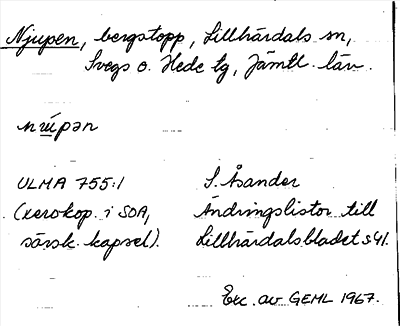 Njupen, bergstopp, Lillhärdals sn,
Svegs o. Hede tg, Jämtl. län.
ULMA 755:1 S. Åsander
(xerokop. i SOA, Ändringslistor till
särsk. kapsel). Lillhärdalsbladet s 41.
Exc. av GEML 1967.